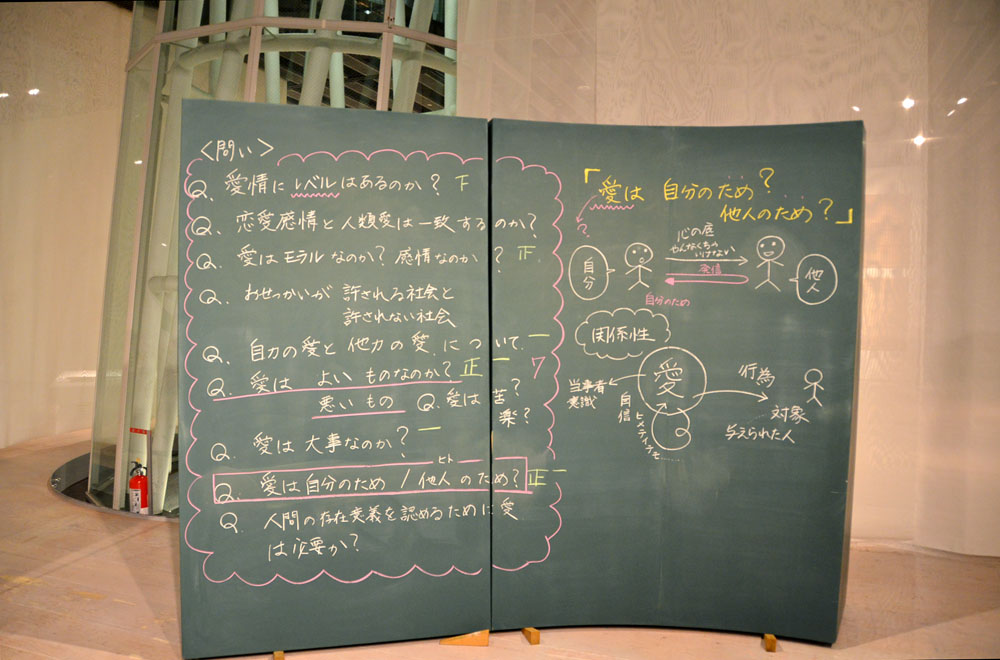 <問い>
Q. 愛情に レベルはあるのか? 下
Q. 恋愛感情と人類愛は一致するのか?
Q. 愛は モラルなのか? 感情なのか? 正
Q. おせっかいが 許される社会と
許されない社会
Q. 自力の愛と 他力の愛 について 一
Q. 愛は よい ものなのか? 正 一 7
悪い もの Q. 愛は 苦?
楽?
Q. 愛は 大事なのか? 一
ヒト
Q. 愛は自分のため / 他人 のため? 正 一
Q. 人間の存在意義を認めるために愛
は必要か?
「愛は 自分のため?
他人のため?」
?
心の底
やんなくちゃ
いけない
自分
発信
他人
自分のため
関係性
愛
当事者
意識
自信
行為
対象
与えられた人